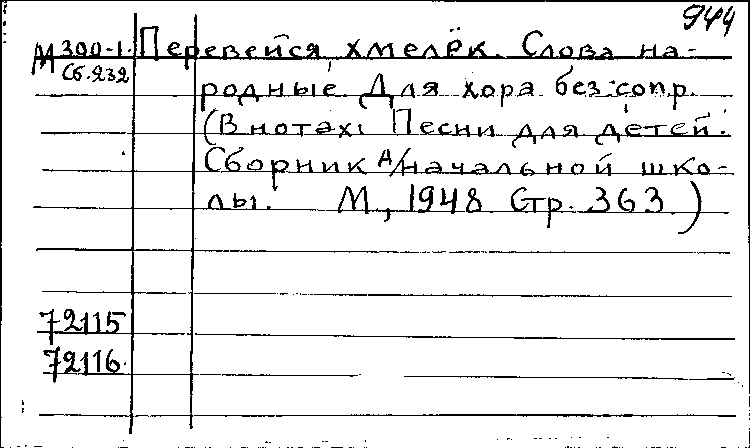 944
М 300-1. Перевейся, хмелёк. Слова на-
Сб.232 родные. Для хора без сопр.
(В нотах: Песни для детей.
Сборник д/начальной шко-
лы. М, 1948. Стр. 363.)
72115
72116.